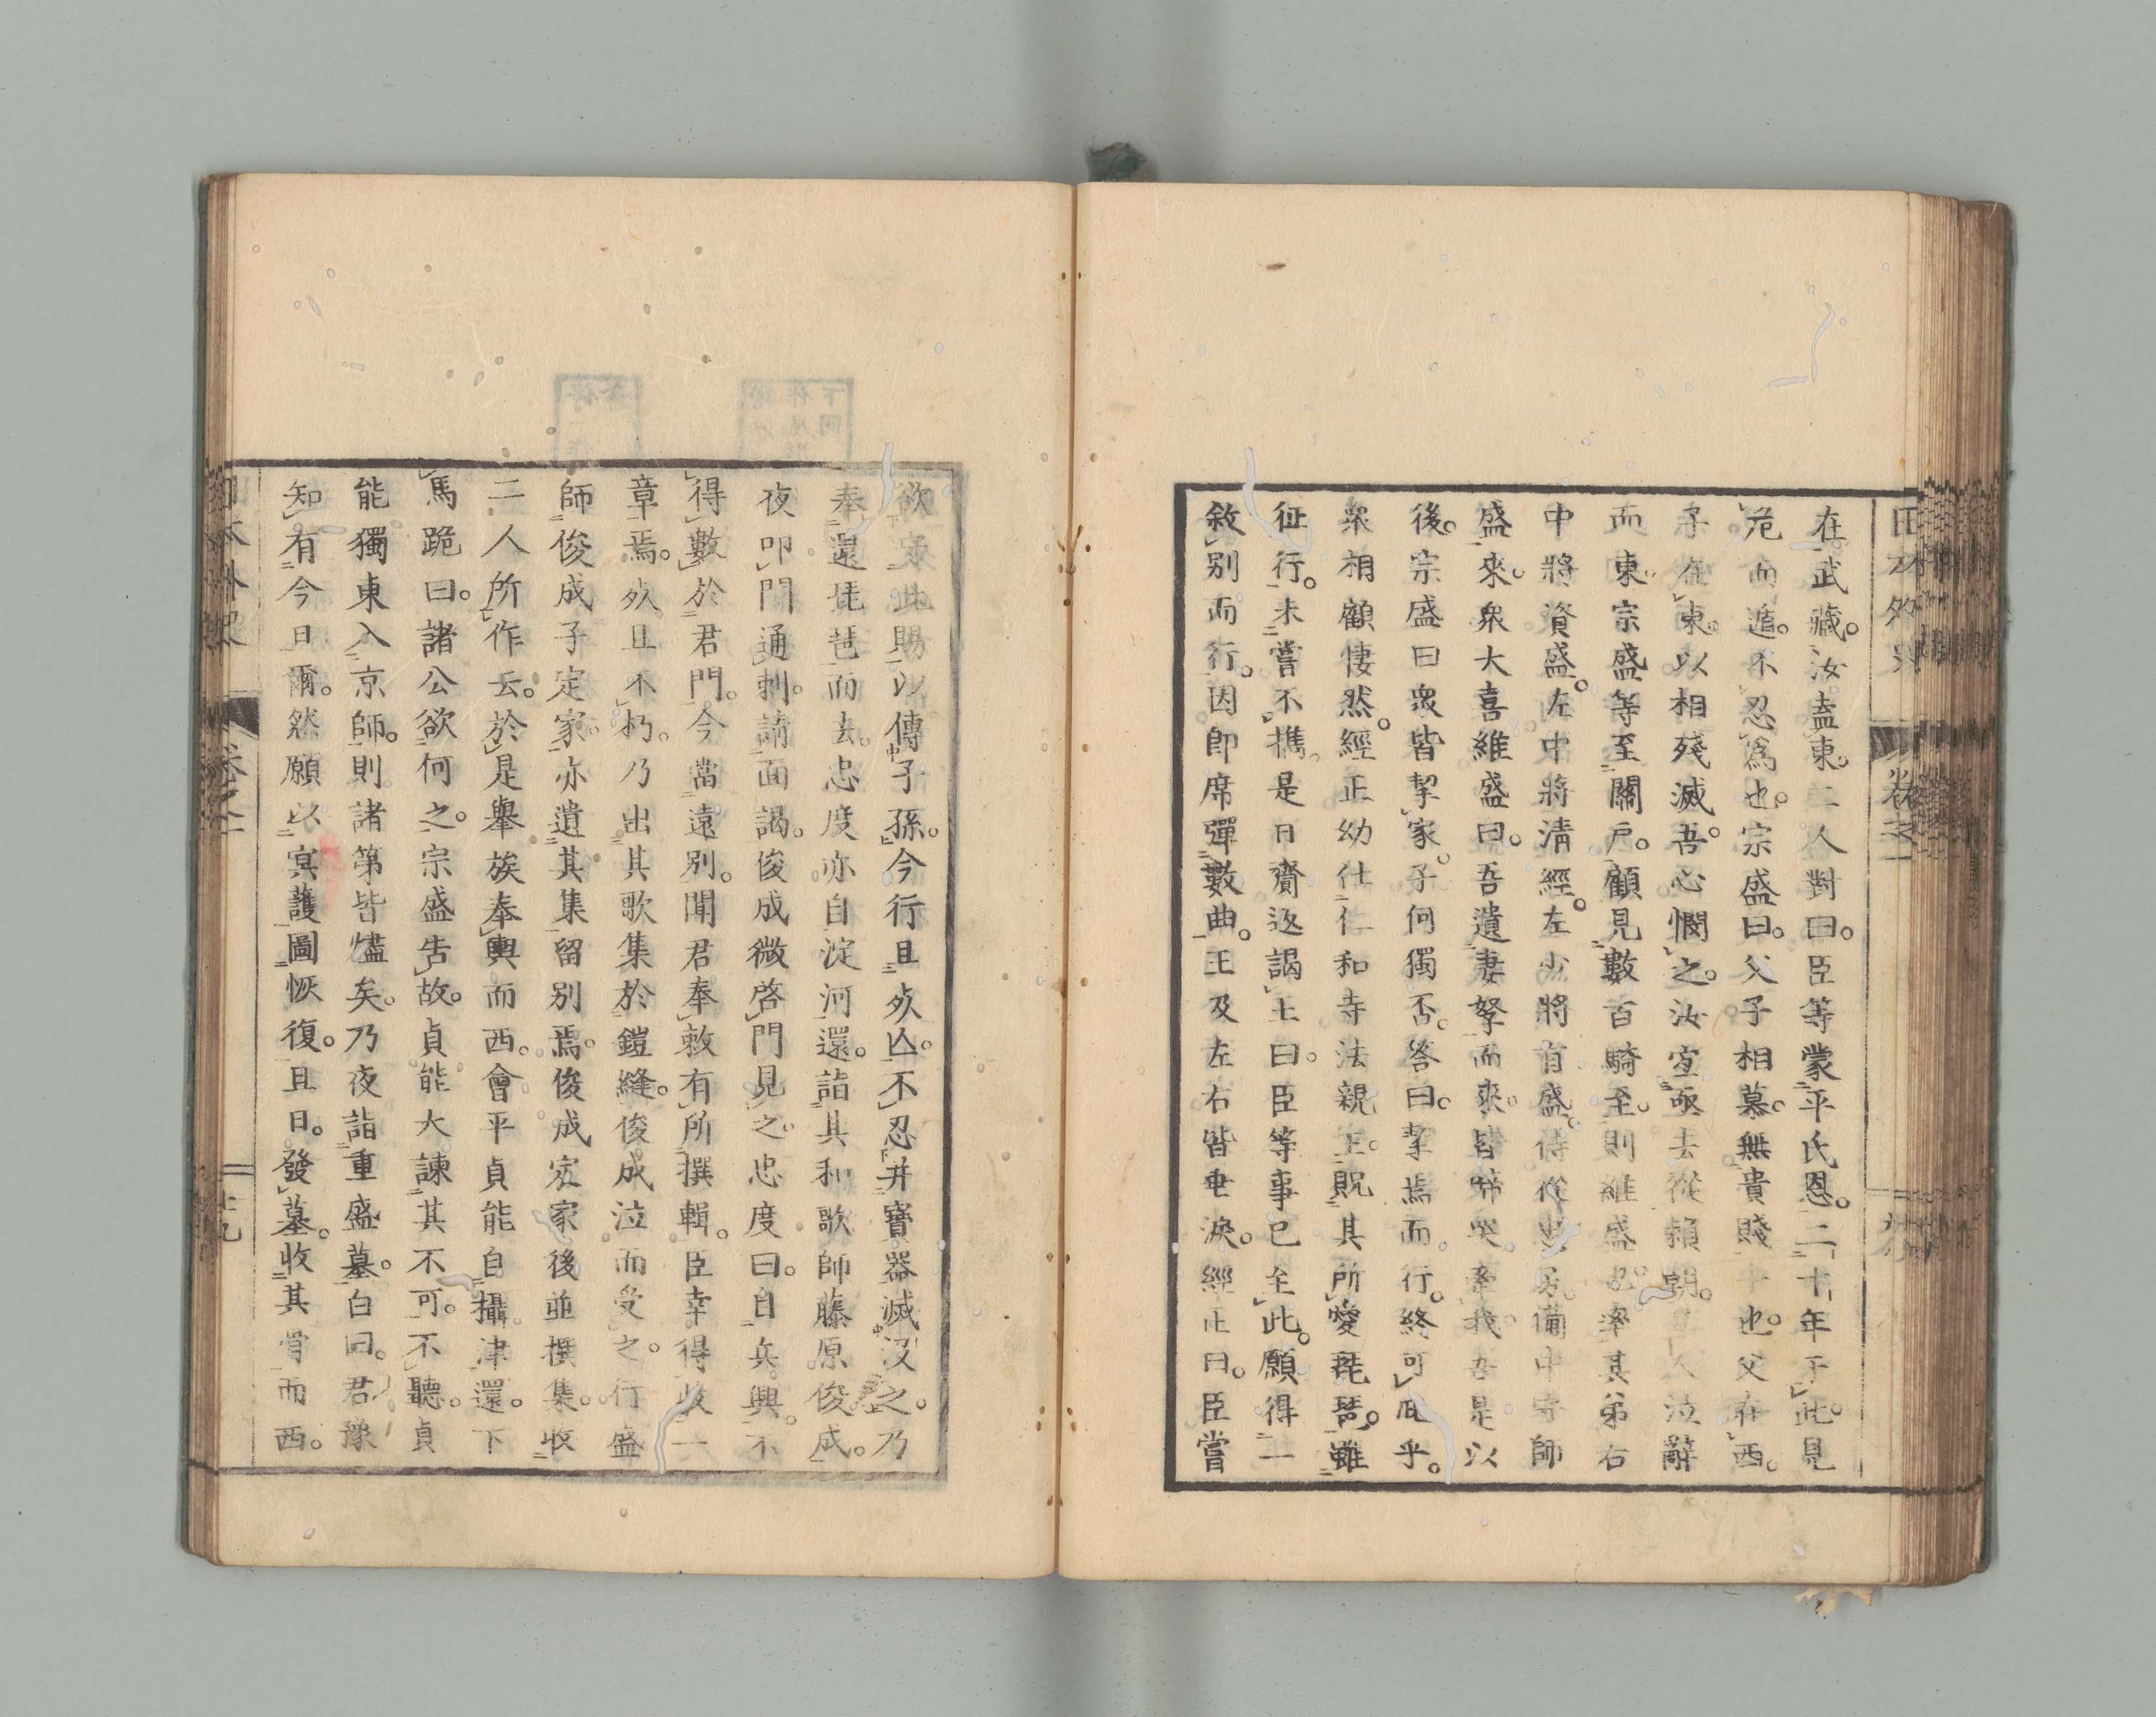 在武藏。汝盍東。二人對曰。臣等蒙平氏恩。二十年于此。見
危而遁。不忍爲也。宗盛曰。父子相慕。無貴賤一也。父在西。
子在東。以相殘滅。吾心憫之。汝宜亟去從賴朝。二人泣辭
而東。宗盛等至關戶。顧見數百騎至。則維盛也。率其弟右
中將資盛。左中將淸經。左少將有盛。侍從忠房備中守師
盛來。衆大喜維盛曰。吾遺妻孥而來。皆啼哭牽我。吾是以
後。宗盛曰衆皆挈家。子何獨否。答曰。挈焉而行。終可保乎。
衆相顧悽然。經正幼仕仁和寺法親王。貺其所愛琵琶。雖
征行。未嘗不攜。是日齎返謁王曰。臣等事已至此。願得一
敘別而行。因卽席彈數曲。王及左右皆垂淚。經正曰。臣嘗
日本外史 卷之二
欲家此賜以傳子孫。今行且死亡。不忍幷寶器滅沒之。乃
奉還琵琶而去。忠度亦自淀河還。詣其和歌師藤原俊成。
夜叩門通刺。請面謁。俊成微啓門見之。忠度曰。自兵興。不
得數於君門。今當遠別。聞君奉敕有所撰輯。臣幸得收一
章焉。死且不朽。乃出其歌集於鎧縫。俊成泣而受之。行盛
師俊成子定家。亦遺其集留別焉。俊成定家後並撰集。收
二人所作云。於是舉族奉輿而西。會平貞能自攝津還。下
馬跪曰。諸公欲何之。宗盛告故。貞能大諫其不可。不聽。貞
能獨東入京師。則諸第皆燼矣。乃夜詣重盛墓。白曰。君豫
知有今日爾。然願以冥護圖恢復。且日。發墓。收其骨而西。
日本外史 卷之二 十九